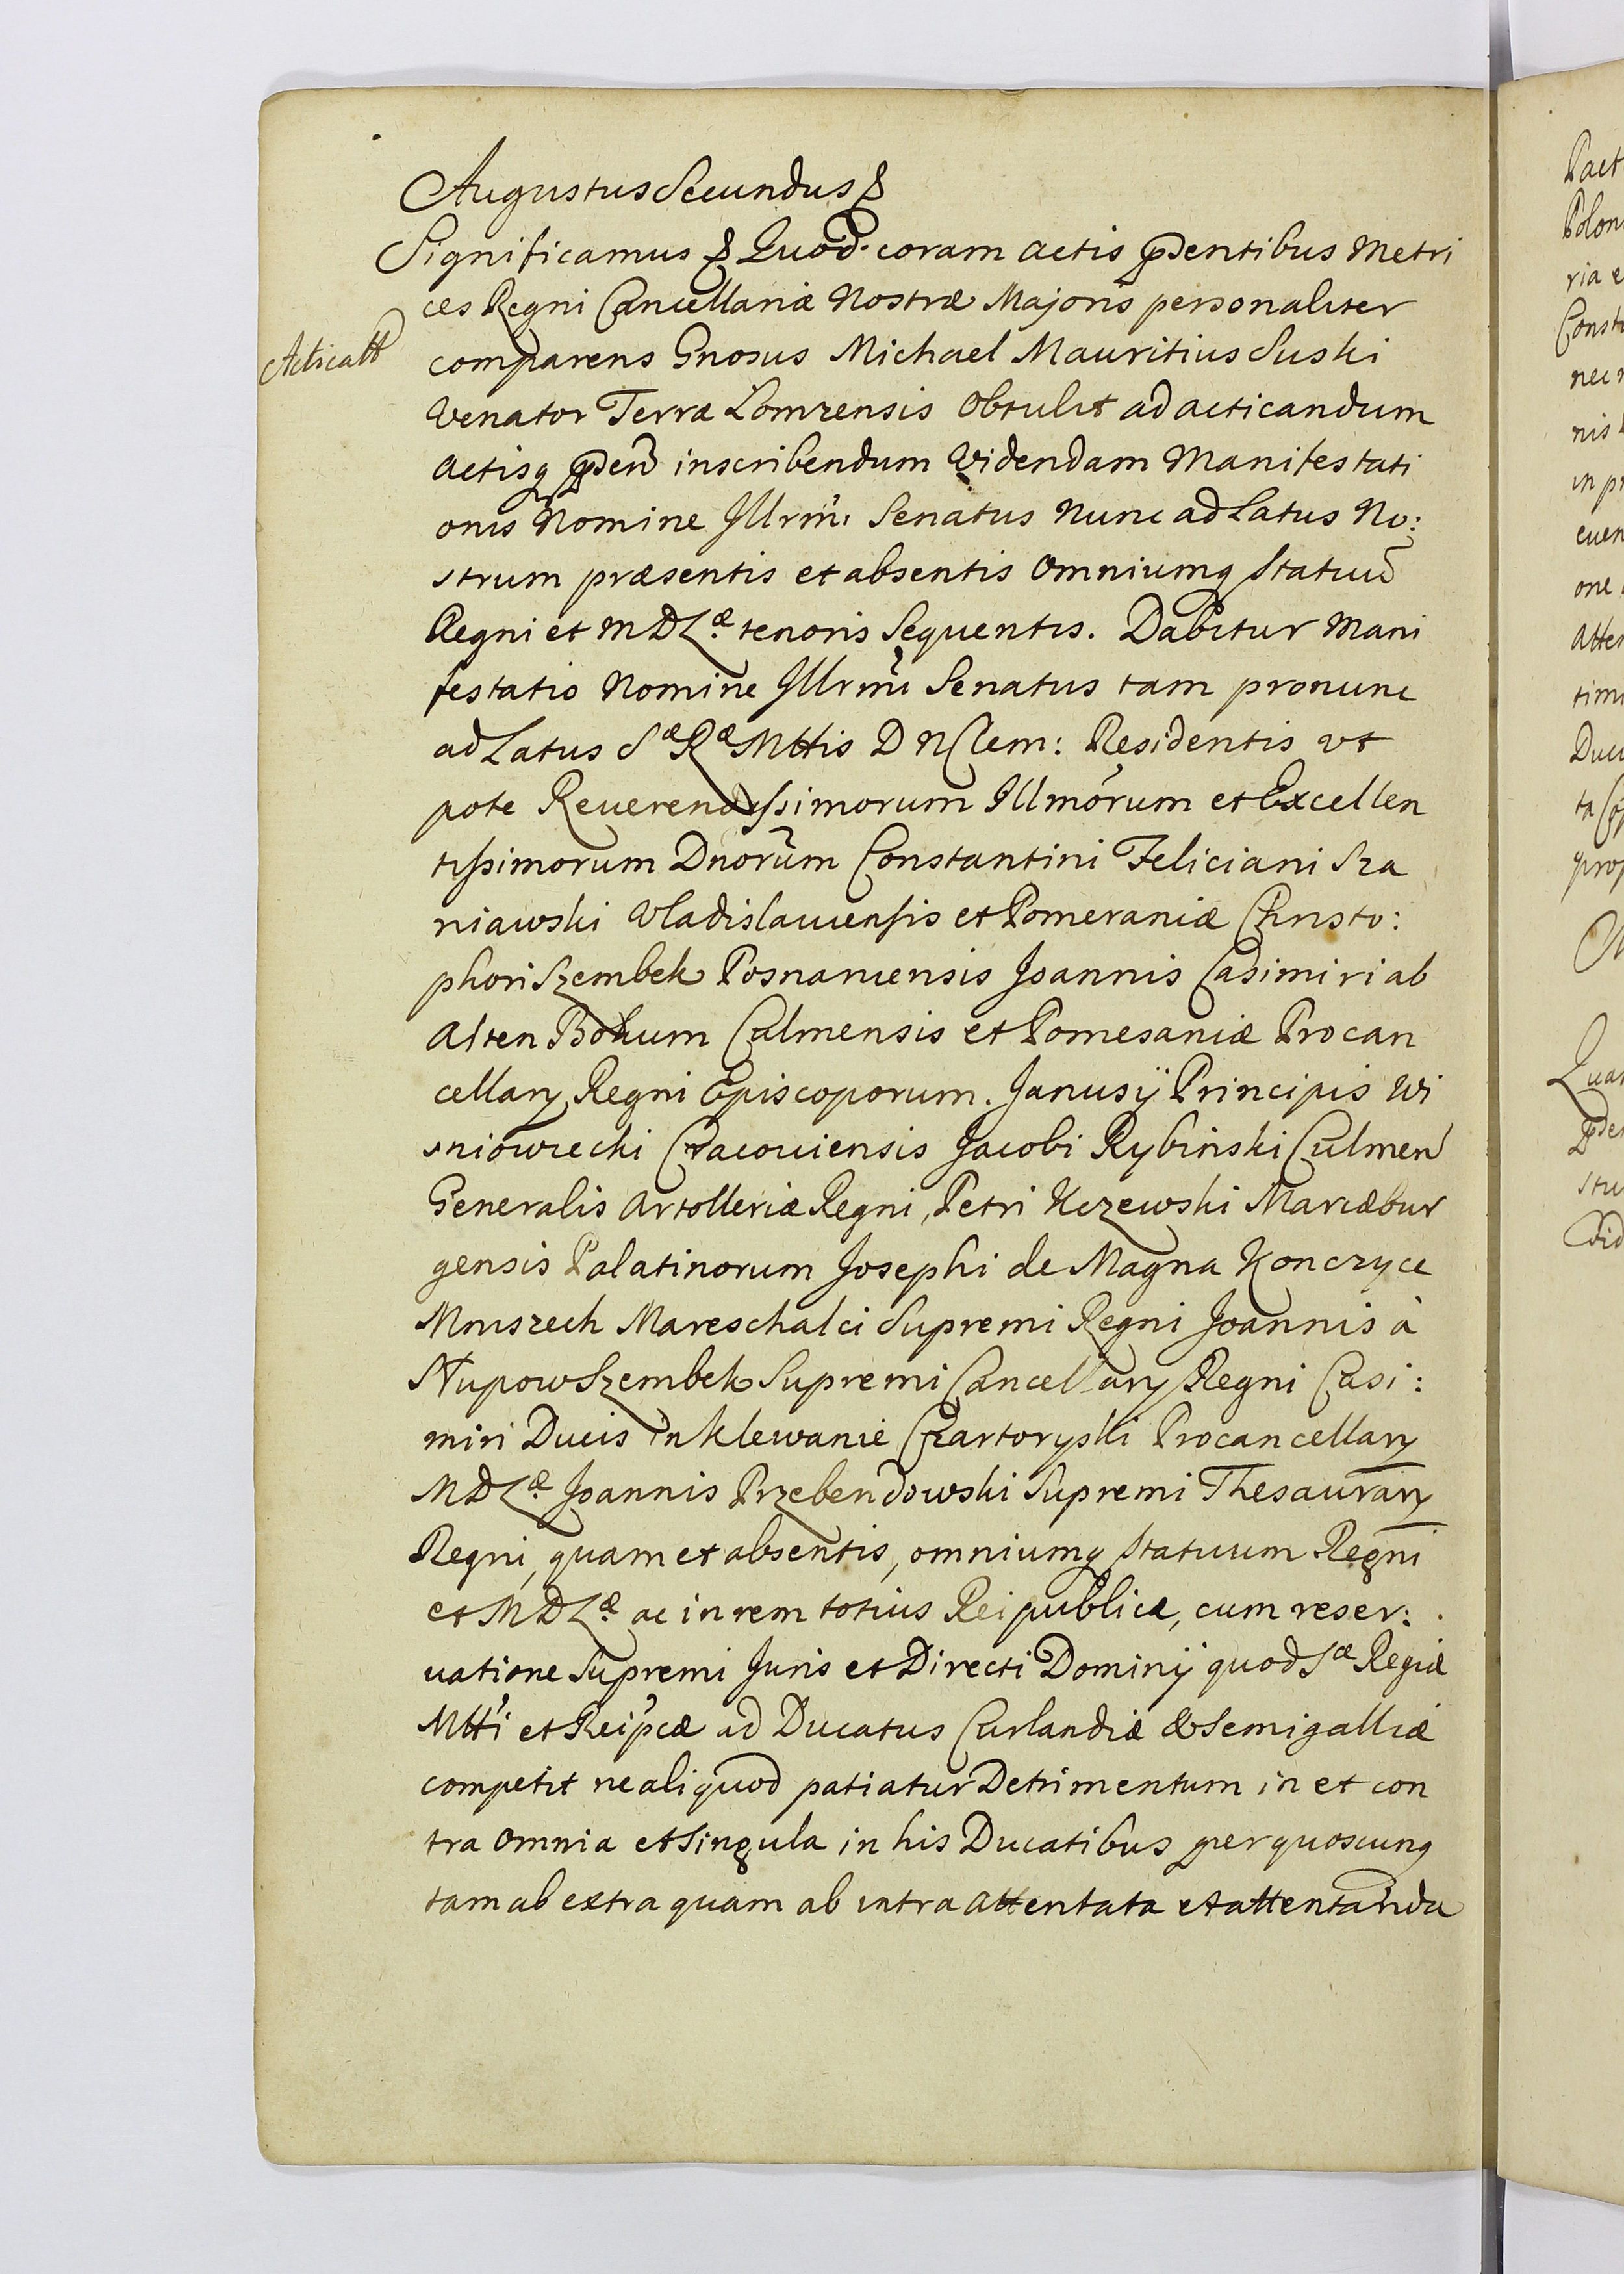 Augustus Secundus &
Significamus & Quod coram actis pṙdentibus Metri
ces Regni Cancellariæ Nostræ Majoris personaliter
Acticatt
comparens Gnosus Michael Mauritius Suski
Venator Terræ Lomzensis obtulit ad acticandum
actisq pṙden inscribendum Videndam Manifestati
onis Nomine Illrmi Senatus Nunc ad Latus No:
strum præsentis et absentis omniumq Statuū
Regni et MDLæ tenoris Sequentis. Dabitur Mani
festatio Nomine Illrmi Senatus tam pro nunc
ad Latus Sæ Ræ Mttis D N Clem: Residentis ut
pote Reuerendissimorum Illmorum et Excellen
tissimorum Dnorum Constantini Feliciani Sza
niawski Vladislauiensis et Pomeraniæ Christo:
phori Szembek Posnaniensis Joannis Casimiri ab
Alten Bokum Culmensis et Pomesaniæ Procan
cellarÿ Regni Episcoporum. Janusÿ Principis Wi
sniowiecki Cracouiensis Jacobi Rybiński Culmen
Generalis Artolleriæ Regni, Petri Kczewski Mariæbur
gensis Palatinorum Josephi de Magna Konczyce
Mniszech Mareschalci Supremi Regni Joannis à
Słupow Szembek Supremi Cancellarÿ Regni Casi:
miri Ducis in Klewanie Czartoryski Procancellarÿ
MDLæ Joannis Przebendowski Supremi Thesaurarÿ
Regni, quam et absentis, omniumq Statuum Regni
et MDLæ ac in rem totius Reipublicæ, cum reser:
uatione Supremi Juris et Directi Dominÿ quod Sæ Regiæ
Mtti et Reipcæ ad Ducatus Curlandiæ & Semigalliæ
competit ne aliquod patiatur Detrimentum in et con
tra omnia et Singula in his Ducatibus per quoscunq
tam ab extra quam ab intra attentata et attentanda